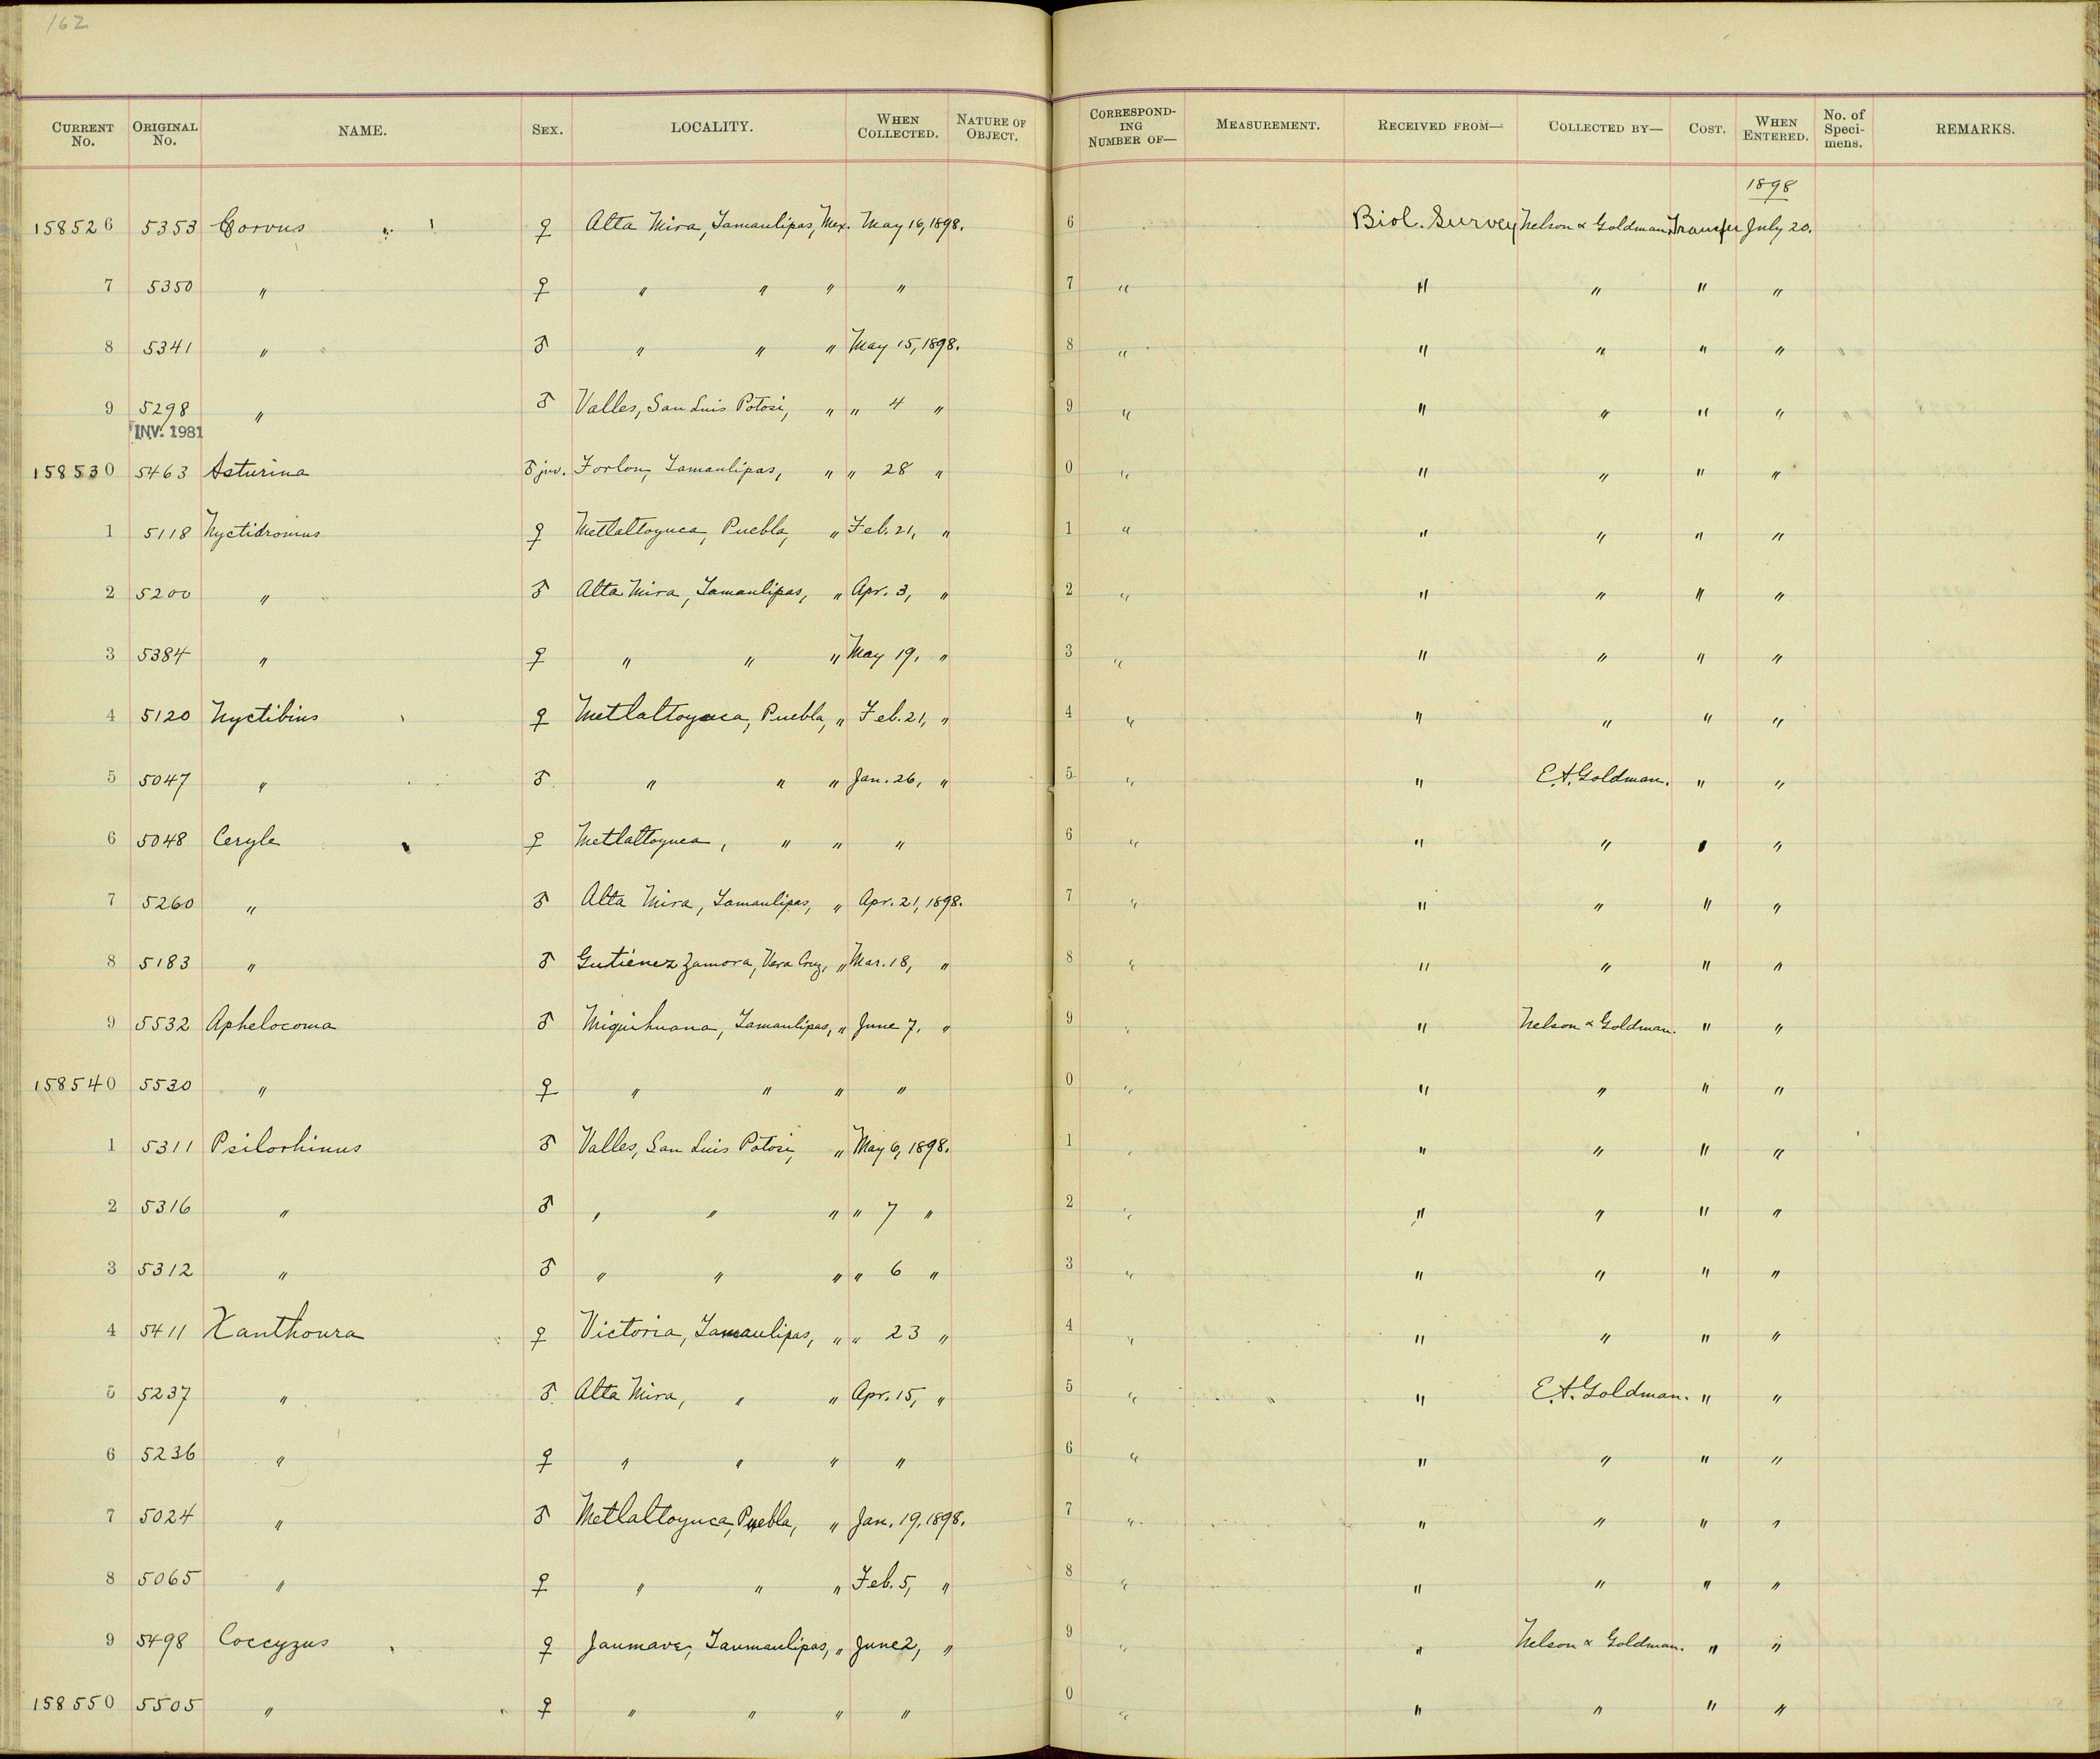 162
CURRENT No. ORIGINAL No. NAME. SEX. LOCALITY. WHEN COLLECTED. NATURE OF OBJECT. CORRESPONDING NUMBER OF— MEASUREMENT. RECEIVED FROM— COLLECTED BY— COST. WHEN ENTERED. No. of Specimens. REMARKS.
1898
158526 5353 Corvus ♀ Alta Mira, Tamaulipas, Mex. May 16, 1898. 6 Biol. Survey Nelson & Goldman. Transfer July 20.
7 5350 " ♀ " " " " 7 " " " " "
8 5341 " ♂ " " " May 15, 1898. 8 " " " " "
9 5298 " ♂ Valles, San Luis Potosi, " " 4 " 9 " " " " "
INV. 1981
158530 5463 Asturina ♂ juv. Forlon, Tamaulipas, " " 28 " 0 " " " " "
1 5118 Nyctidromus ♀ Metlaltoyuca, Puebla, " Feb. 21, " 1 " " " " "
2 5200 " ♂ Alta Mira, Tamaulipas, " Apr. 3, " 2 " " " " "
3 5384 " ♀ " " " May 19, " 3 " " " " "
4 5120 Nyctibius ♀ Metlaltoyuca, Puebla, " Feb. 21, " 4 " " " " "
5 5047 " ♂ " " " Jan. 26, " 5 " " E.A. Goldman. " "
6 5048 Ceryle ♀ Metlaltoyuca, " " " 6 " " " " "
7 5260 " ♂ Alta Mira, Tamaulipas, " Apr. 21, 1898. 7 " " " " "
8 5183 " ♂ Gutierrez Zamora, Vera Cruz, " Mar. 18, " 8 " " " " "
9 5532 Aphelocoma ♂ Miquihuana, Tamaulipas, " June 7, " 9 " " Nelson & Goldman. " "
158540 5530 " ♀ " " " " 0 " " " " "
1 5311 Psilorhinus ♂ Valles, San Luis Potosi, " May 6, 1898. 1 " " " " "
2 5316 " ♂ " " " " 7 " 2 " " " " "
3 5312 " ♂ " " " " 6 " 3 " " " " "
4 5411 Xanthoura ♀ Victoria, Tamaulipas, " " 23 " 4 " " " " "
5 5237 " ♂ Alta Mira, " " Apr. 15, " 5 " " E.A. Goldman. " "
6 5236 " ♀ " " " " 6 " " " " "
7 5024 " ♂ Metlaltoyuca, Puebla, " Jan. 19, 1898. 7 " " " " "
8 5065 " ♀ " " " Feb. 5, " 8 " " " " "
9 5498 Coccyzus ♀ Jaumave, Taumaulipas, " June 2, " 9 " " Nelson & Goldman. " "
158550 5505 " ♀ " " " " 0 " " " " "